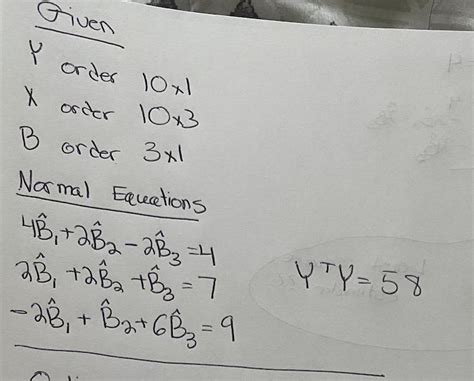 Given
Y order 10x1
X order 10x3
B order 3x1
Normal Equations
4B̂₁+2B̂₂-2B̂₃=4
2B̂₁+2B̂₂+B̂₃=7
-2B̂₁+B̂₂+6B̂₃=9
YᵀY=58